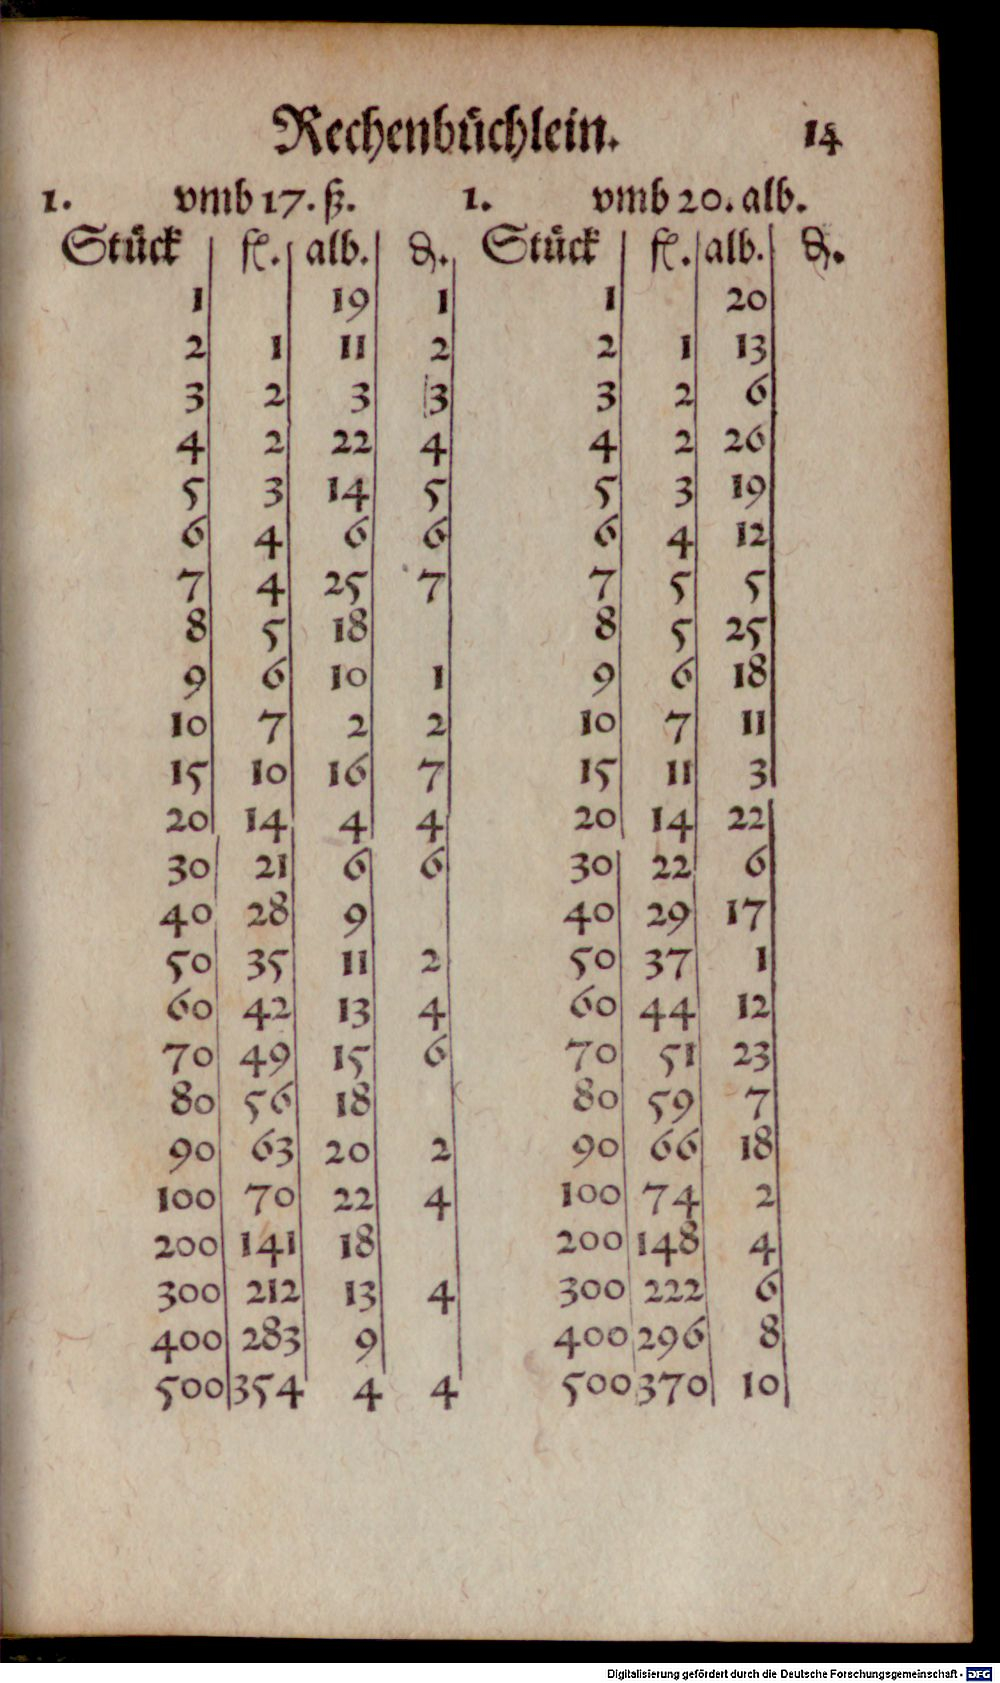 Rechenbüchlein. 14
1. vmb 17. ß. 1. vmb 20. alb.
Stück fl. alb. ₰. Stück fl. alb. ₰.
1 19 1 1 20
2 1 11 2 2 1 13
3 2 3 3 3 2 6
4 2 22 4 4 2 26
5 3 14 5 5 3 19
6 4 6 6 6 4 12
7 4 25 7 7 5 5
8 5 18 8 5 25
9 6 10 1 9 6 18
10 7 2 2 10 7 11
15 10 16 7 15 11 3
20 14 4 4 20 14 22
30 21 6 6 30 22 6
40 28 9 40 29 17
50 35 11 2 50 37 1
60 42 13 4 60 44 12
70 49 15 6 70 51 23
80 56 18 80 59 7
90 63 20 2 90 66 18
100 70 22 4 100 74 2
200 141 18 200 148 4
300 212 13 4 300 222 6
400 283 9 400 296 8
500 354 4 4 500 370 10
Digitalisierung gefördert durch die Deutsche Forschungsgemeinschaft - DFG